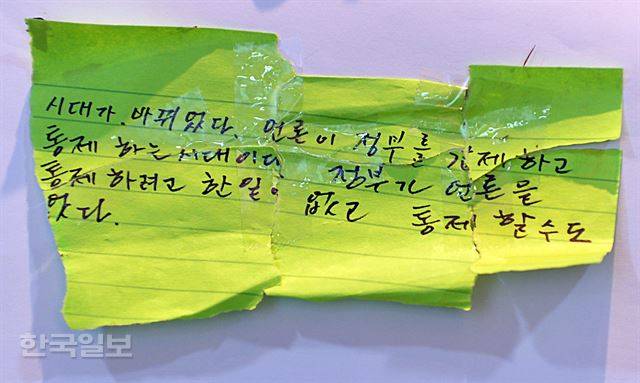 시대가 바뀌었다. 언론이 정부를 감제 하고
통제 하는 시대이다 정부가 언론을
통제 하려고 한 일 없고 통제 할 수도
없다.
한국일보